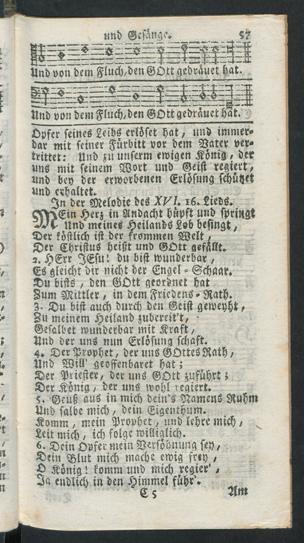 und Gesänge. 57
Und von dem Fluch, den GOtt gedräuet hat.
Und von dem Fluch, den GOtt gedräuet hat.
Opfer seines Leibs erlöset hat, und immer-
dar mit seiner Fürbitt vor dem Vater ver-
trittet: Und zu unserm ewigen König, der
uns mit seinem Wort und Geist regiert,
und bey der erworbenen Erlösung schützet
und erhaltet.
In der Melodie des XVI. 16. Lieds.
MEin Herz in Andacht hüpft und springt
Und meines Heilands Lob besingt,
Der köstlich ist der frommen Welt,
Der Christus heißt und GOtt gefällt.
2. HErr JEsu! du bist wunderbar,
Es gleicht dir nicht der Engel-Schaar.
Du bists, den GOtt geordnet hat
Zum Mittler, in dem Friedens-Rath.
3. Du bist auch durch den Geist geweyht,
Zu meinem Heiland zubereit't,
Gesalbet wunderbar mit Kraft,
Und der uns nun Erlösung schaft.
4. Der Prophet, der uns GOttes Rath,
Und Will' geoffenbaret hat;
Der Priester, der uns GOtt zuführt;
Der König, der uns wohl regiert.
5. Geuß aus in mich dein's Namens Ruhm
Und salbe mich, dein Eigenthum.
Komm, mein Prophet, und lehre mich,
Leit mich, ich folge williglich.
6. Dein Opfer mein Versöhnung sey,
Dein Blut mich mache ewig frey,
O König! komm und mich regier',
Ja endlich in den Himmel führ'.
C 5 Am